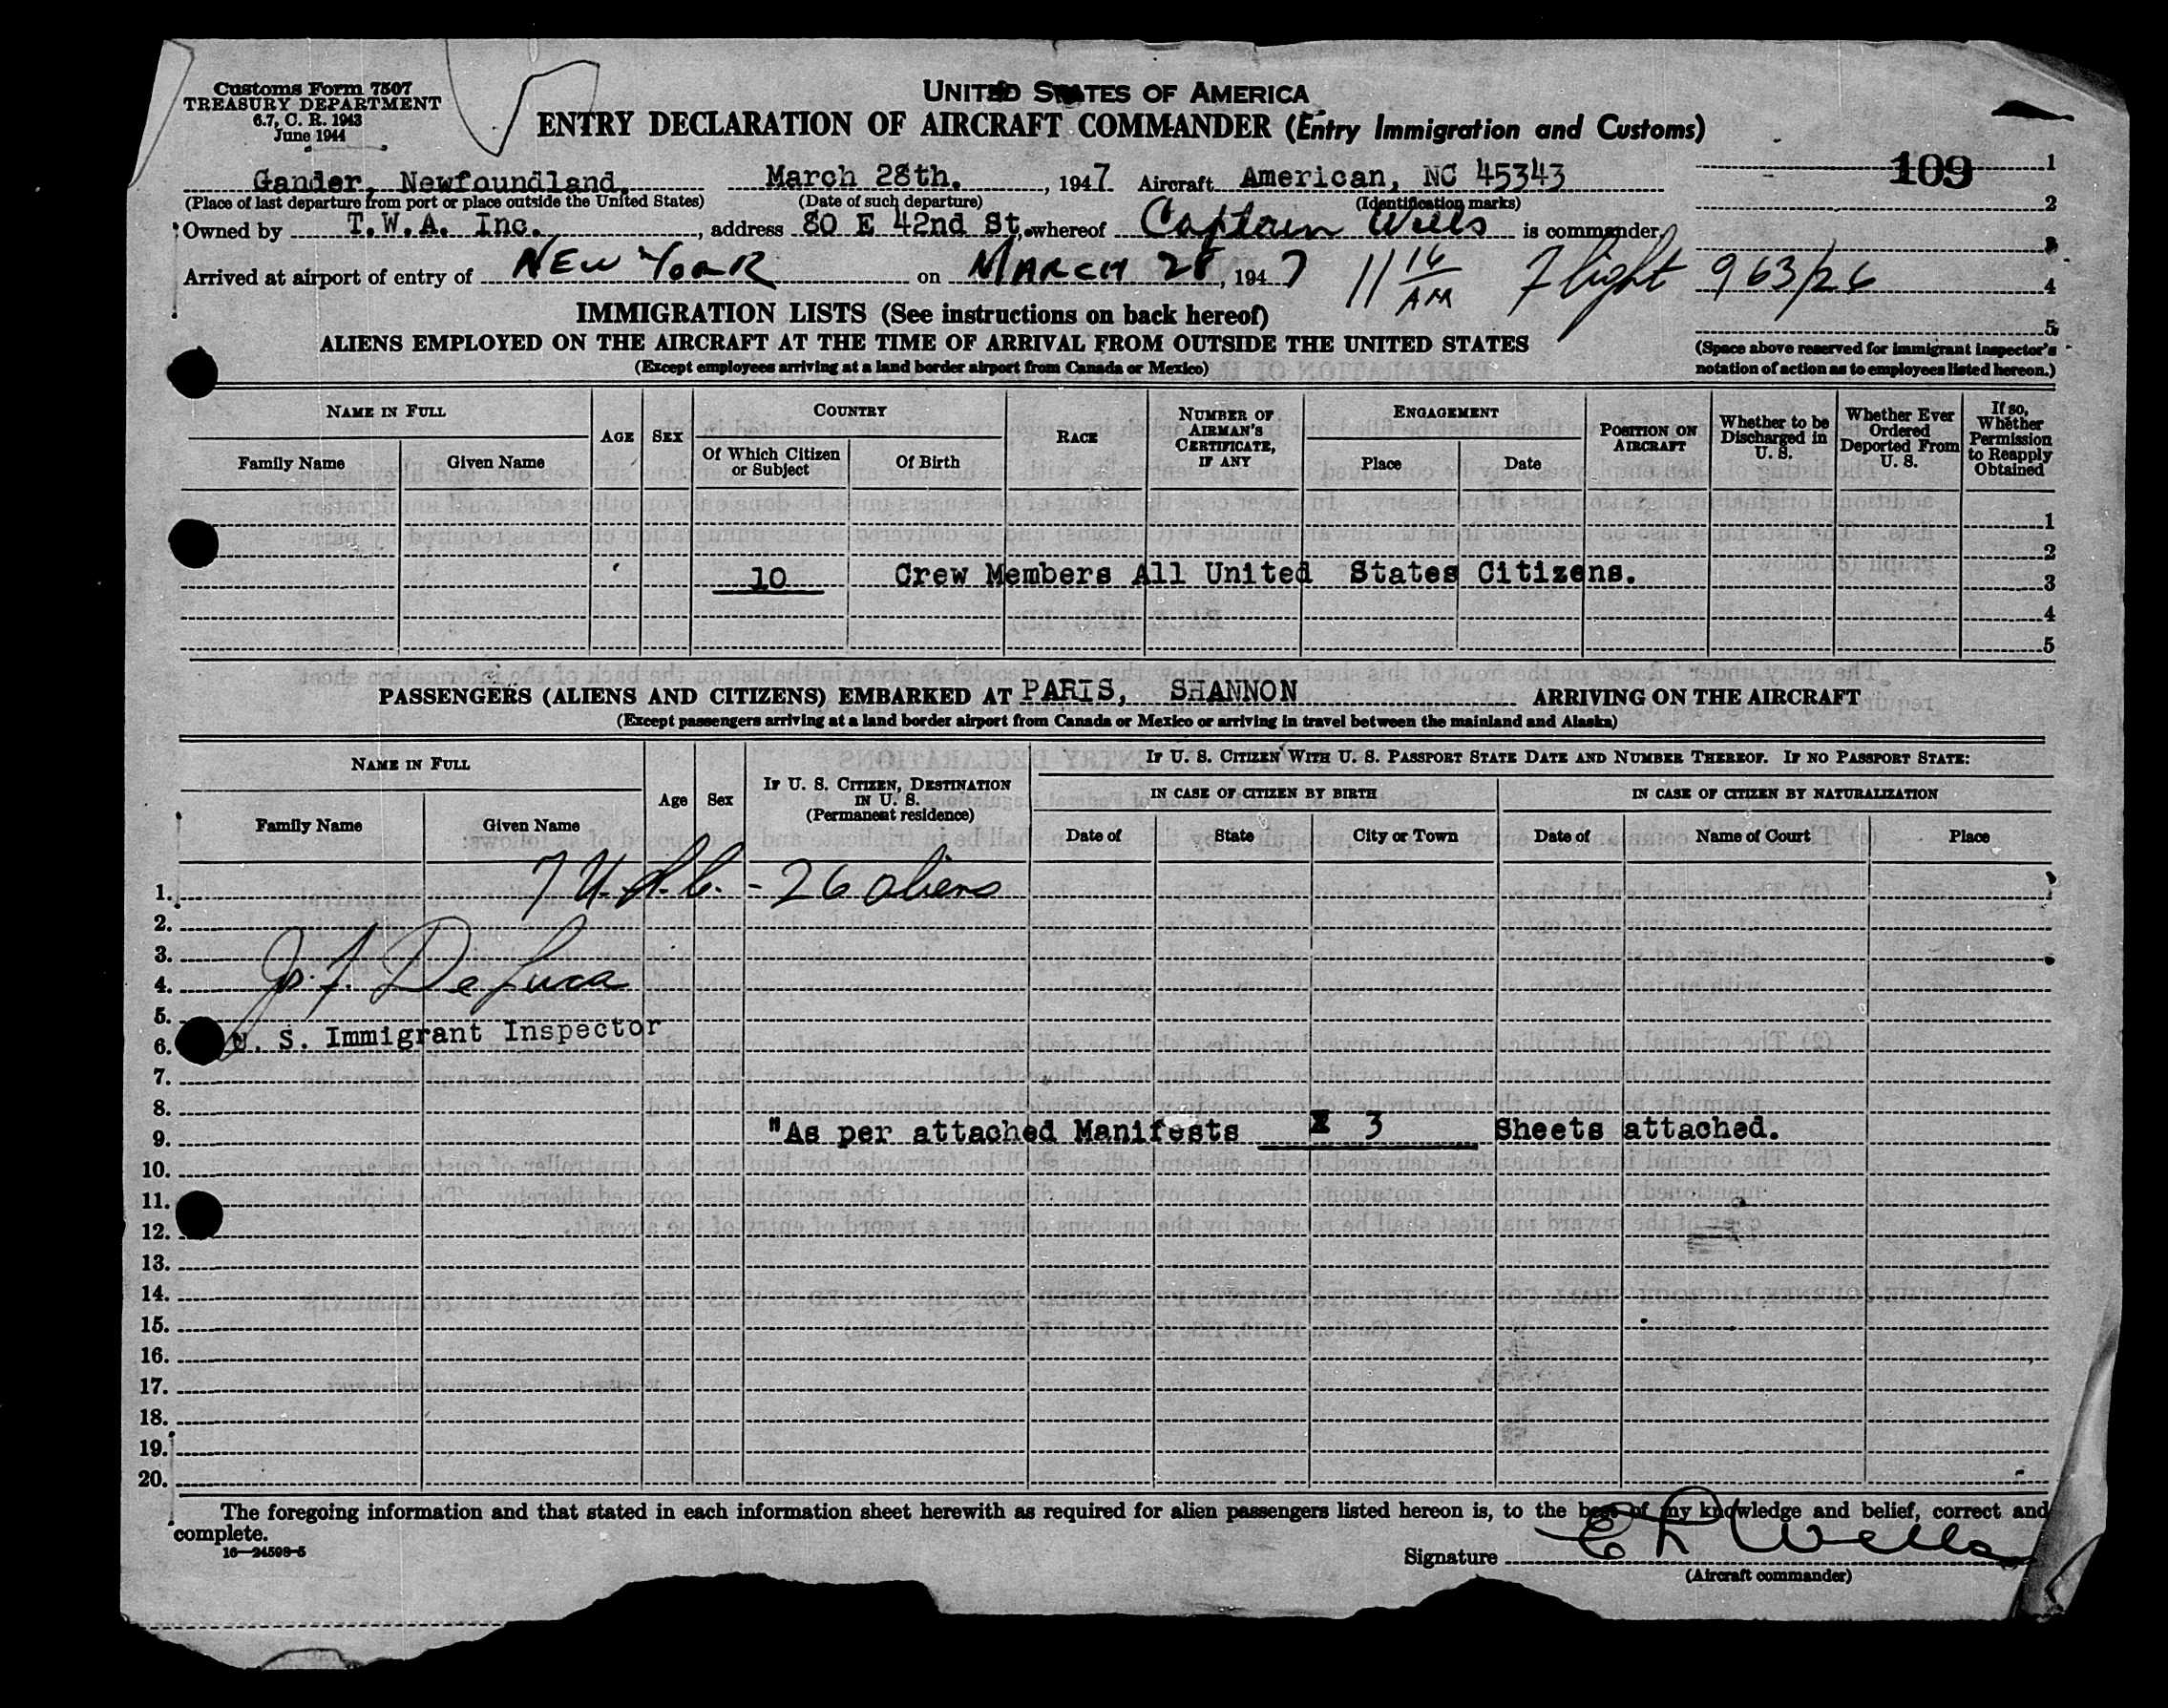 Customs Form 7507
TREASURY DEPARTMENT
6.7, C. R. 1943
June 1944
UNITED STATES OF AMERICA
ENTRY DECLARATION OF AIRCRAFT COMMANDER (Entry Immigration and Customs)
109
Gander, Newfoundland, March 28th. , 1947 Aircraft American, NC 45343
(Place of last departure from port or place outside the United States) (Date of such departure) (Identification marks)
Owned by T.W.A. Inc. , address 80 E 42nd St. whereof Captain Wells is commander,
Arrived at airport of entry of NEW YORK on MARCH 28 , 1947 11 16 AM Flight 963/26
1
2
3
4
5
(Space above reserved for immigrant inspector's
notation of action as to employees listed hereon.)
IMMIGRATION LISTS (See instructions on back hereof)
ALIENS EMPLOYED ON THE AIRCRAFT AT THE TIME OF ARRIVAL FROM OUTSIDE THE UNITED STATES
(Except employees arriving at a land border airport from Canada or Mexico)
NAME IN FULL
Family Name Given Name
AGE SEX
COUNTRY
Of Which Citizen or Subject
Of Birth
RACE
NUMBER OF AIRMAN'S CERTIFICATE, IF ANY
ENGAGEMENT
Place Date
POSITION ON AIRCRAFT
Whether to be Discharged in U. S.
Whether Ever Ordered Deported From U. S.
If so, Whether Permission to Reapply Obtained
1
2
10 Crew Members All United States Citizens. 3
4
5
PASSENGERS (ALIENS AND CITIZENS) EMBARKED AT PARIS, SHANNON ARRIVING ON THE AIRCRAFT
(Except passengers arriving at a land border airport from Canada or Mexico or arriving in travel between the mainland and Alaska)
NAME IN FULL
Family Name Given Name
Age Sex
IF U. S. CITIZEN, DESTINATION IN U. S.
(Permanent residence)
IF U. S. CITIZEN WITH U. S. PASSPORT STATE DATE AND NUMBER THEREOF. IF NO PASSPORT STATE:
IN CASE OF CITIZEN BY BIRTH IN CASE OF CITIZEN BY NATURALIZATION
Date of State City or Town Date of Name of Court Place
1. 7 U.S.C. - 26 aliens
2.
3.
4. De Luca
5.
6. U. S. Immigrant Inspector
7.
8.
9. "As per attached Manifests X 3 Sheets attached.
10.
11.
12.
13.
14.
15.
16.
17.
18.
19.
20.
The foregoing information and that stated in each information sheet herewith as required for alien passengers listed hereon is, to the best of my knowledge and belief, correct and
complete.
16—24598-5
Signature Wells
(Aircraft commander)